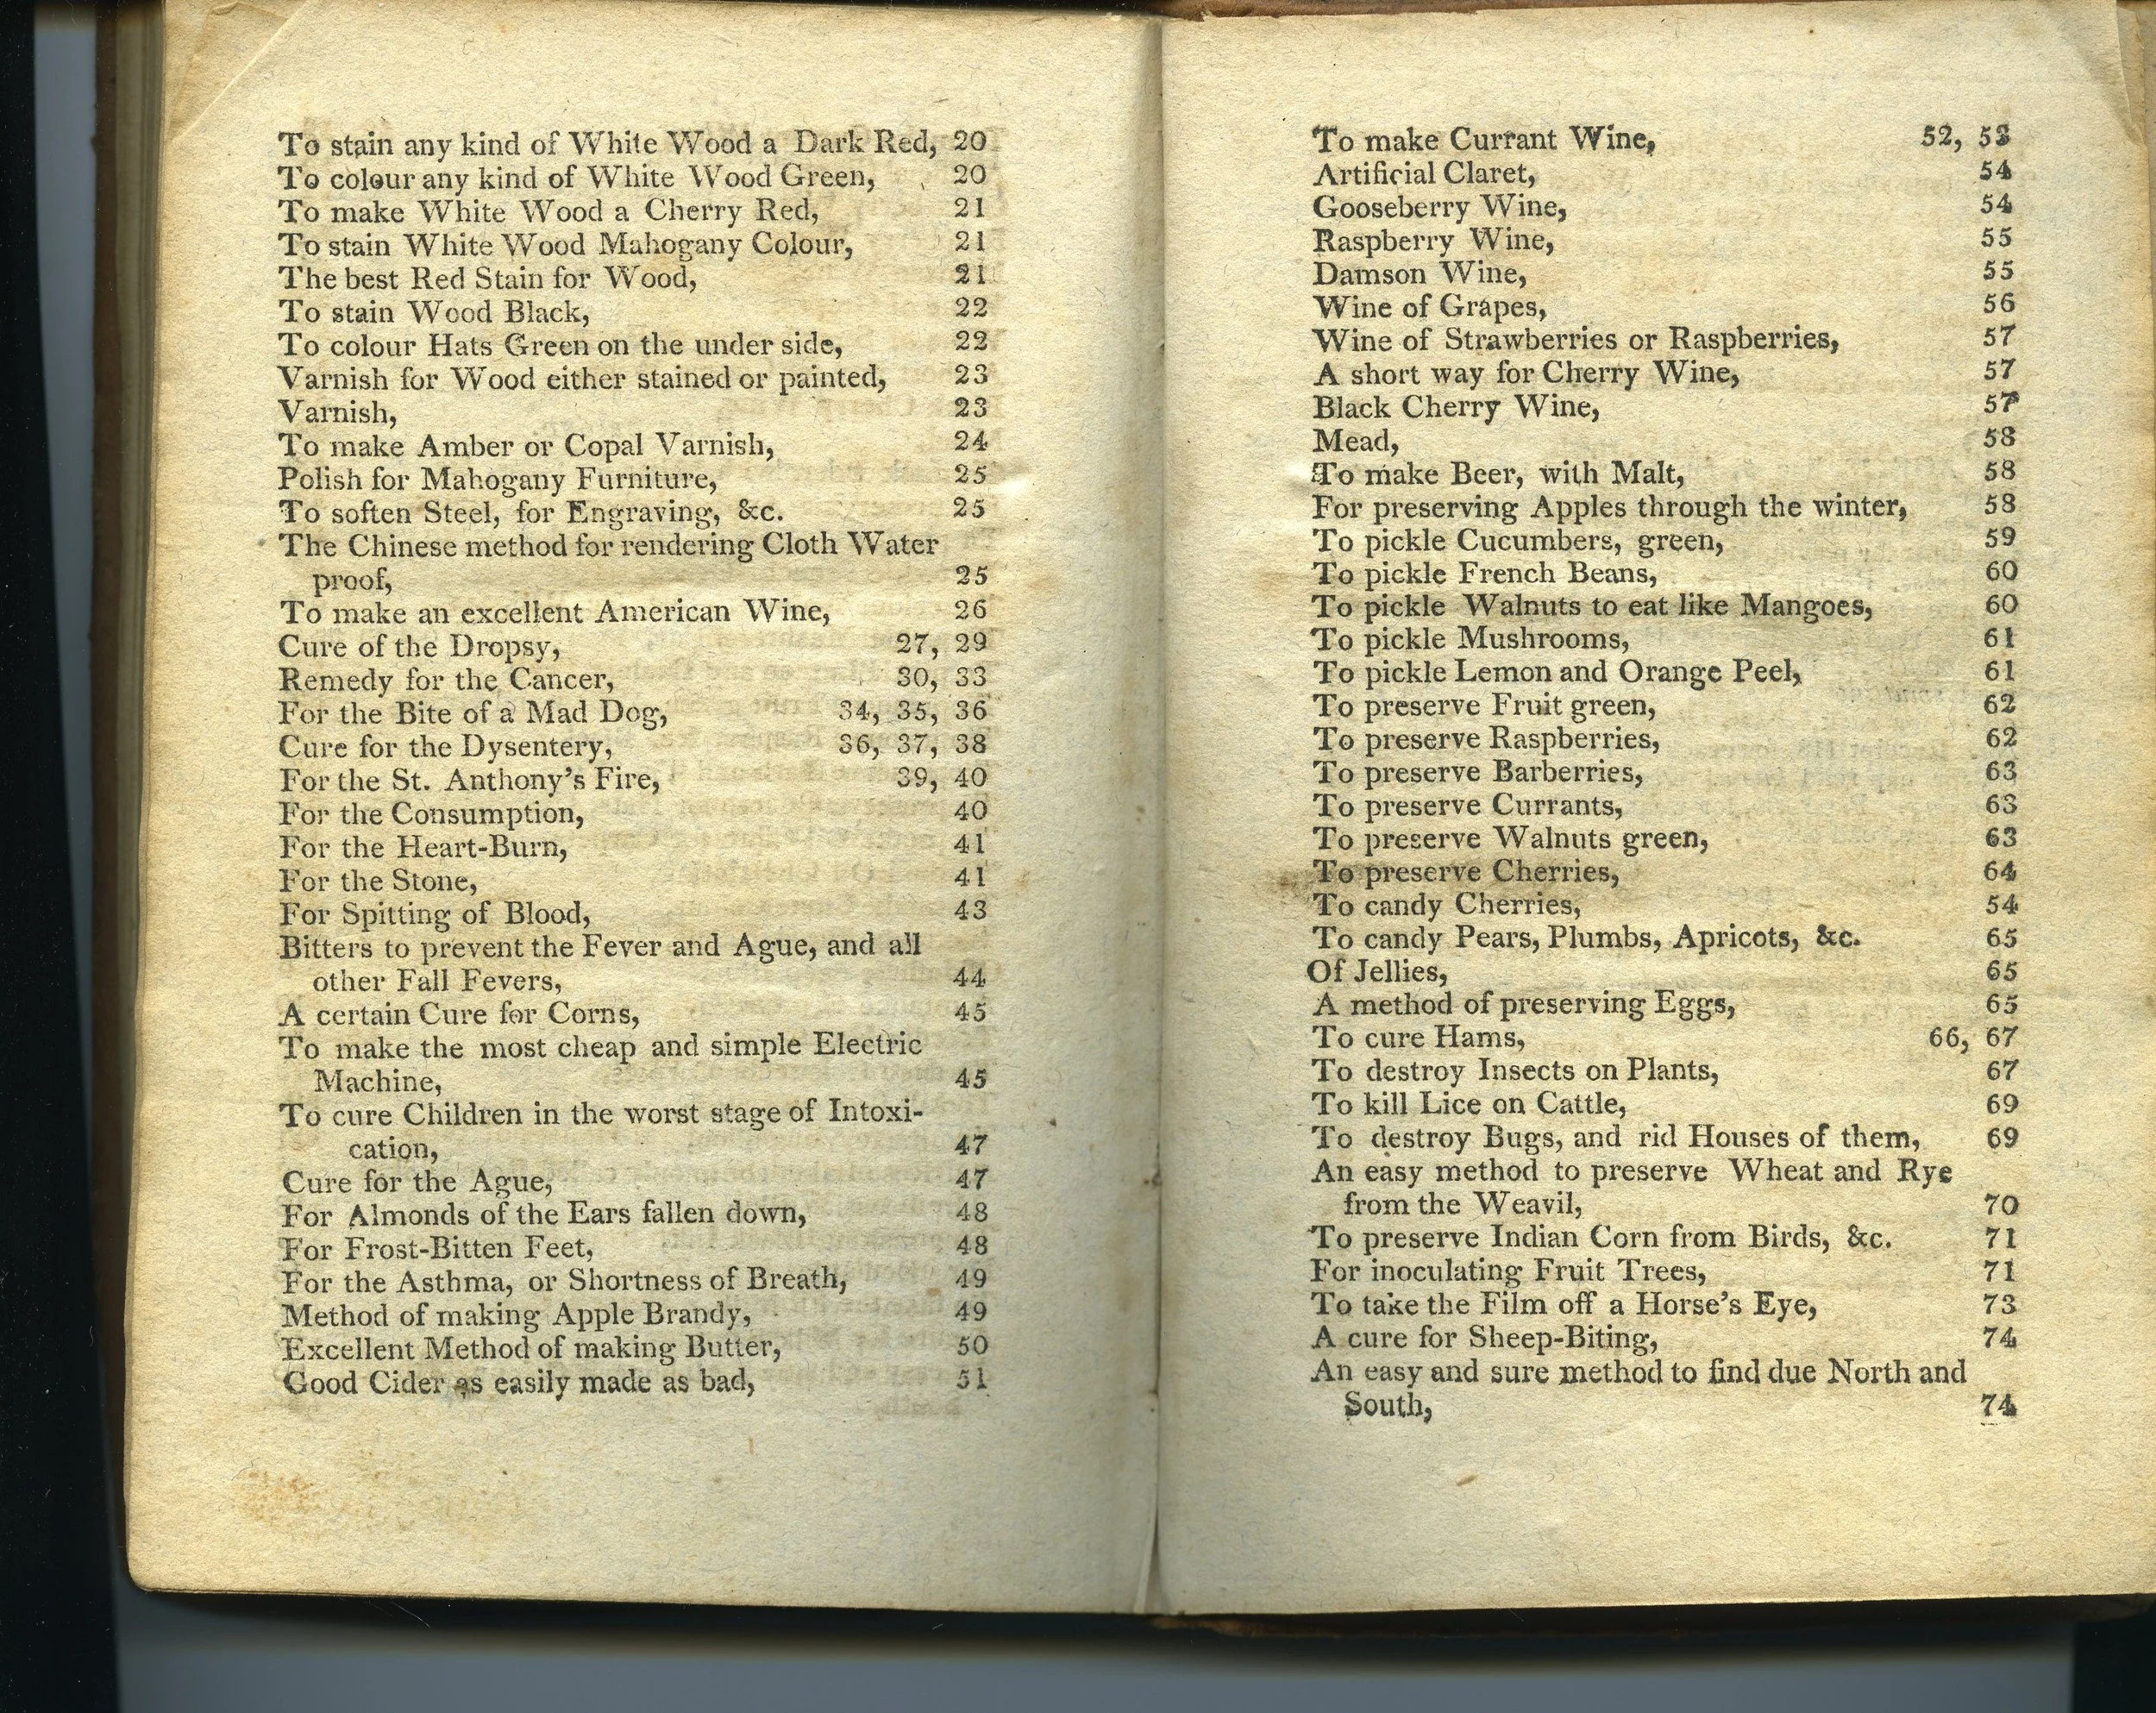 To stain any kind of White Wood a Dark Red, 20
To colour any kind of White Wood Green, 20
To make White Wood a Cherry Red, 21
To stain White Wood Mahogany Colour, 21
The best Red Stain for Wood, 21
To stain Wood Black, 22
To colour Hats Green on the under side, 22
Varnish for Wood either stained or painted, 23
Varnish, 23
To make Amber or Copal Varnish, 24
Polish for Mahogany Furniture, 25
To soften Steel, for Engraving, &c. 25
The Chinese method for rendering Cloth Water
proof, 25
To make an excellent American Wine, 26
Cure of the Dropsy, 27, 29
Remedy for the Cancer, 30, 33
For the Bite of a Mad Dog, 34, 35, 36
Cure for the Dysentery, 36, 37, 38
For the St. Anthony's Fire, 39, 40
For the Consumption, 40
For the Heart-Burn, 41
For the Stone, 41
For Spitting of Blood, 43
Bitters to prevent the Fever and Ague, and all
other Fall Fevers, 44
A certain Cure for Corns, 45
To make the most cheap and simple Electric
Machine, 45
To cure Children in the worst stage of Intoxi-
cation, 47
Cure for the Ague, 47
For Almonds of the Ears fallen down, 48
For Frost-Bitten Feet, 48
For the Asthma, or Shortness of Breath, 49
Method of making Apple Brandy, 49
Excellent Method of making Butter, 50
Good Cider as easily made as bad, 51
To make Currant Wine, 52, 53
Artificial Claret, 54
Gooseberry Wine, 54
Raspberry Wine, 55
Damson Wine, 55
Wine of Grapes, 56
Wine of Strawberries or Raspberries, 57
A short way for Cherry Wine, 57
Black Cherry Wine, 57
Mead, 58
To make Beer, with Malt, 58
For preserving Apples through the winter, 58
To pickle Cucumbers, green, 59
To pickle French Beans, 60
To pickle Walnuts to eat like Mangoes, 60
To pickle Mushrooms, 61
To pickle Lemon and Orange Peel, 61
To preserve Fruit green, 62
To preserve Raspberries, 62
To preserve Barberries, 63
To preserve Currants, 63
To preserve Walnuts green, 63
To preserve Cherries, 64
To candy Cherries, 54
To candy Pears, Plumbs, Apricots, &c. 65
Of Jellies, 65
A method of preserving Eggs, 65
To cure Hams, 66, 67
To destroy Insects on Plants, 67
To kill Lice on Cattle, 69
To destroy Bugs, and rid Houses of them, 69
An easy method to preserve Wheat and Rye
from the Weavil, 70
To preserve Indian Corn from Birds, &c. 71
For inoculating Fruit Trees, 71
To take the Film off a Horse's Eye, 73
A cure for Sheep-Biting, 74
An easy and sure method to find due North and
South, 74